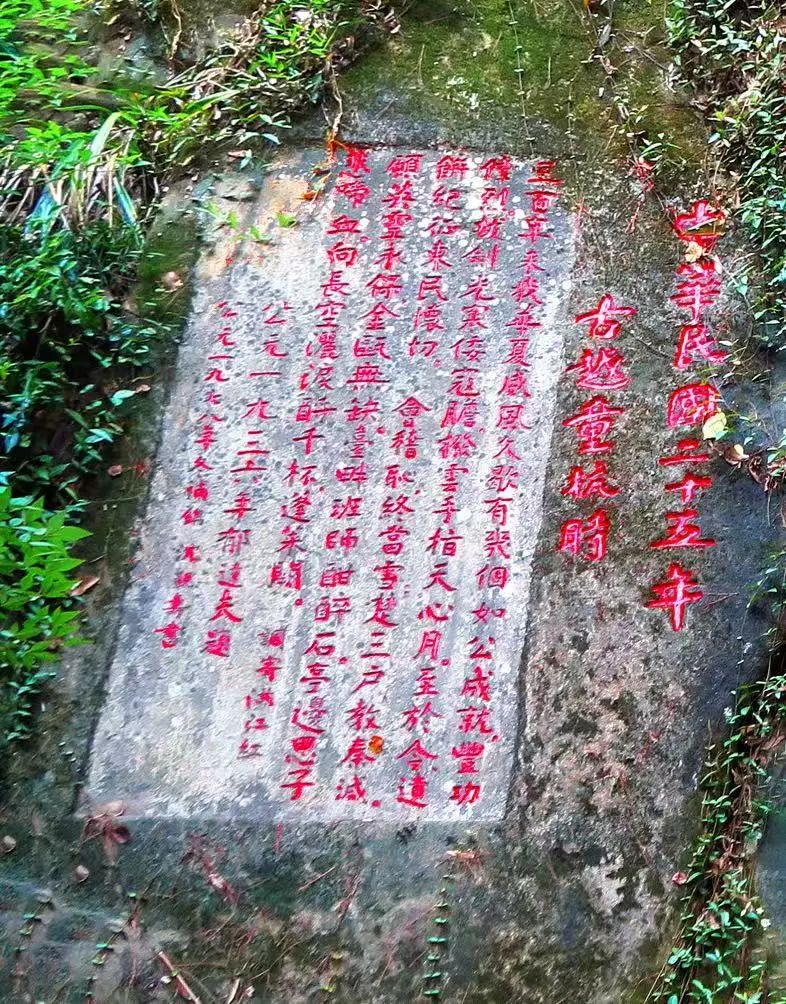 中華民國二十五年
古越童杭時
三百年來我華夏威風久歇有幾個如公成就,豐功
偉烈。拔劍光寒倭寇膽,撥雲手指天心月。至於今,遺
餅紀征東民懷切。會稽恥,終當雪;楚三戶教秦滅。
願英靈永保金甌無缺。臺畔班師酣醉石亭邊思子
悲啼血。向長空灑淚酹千杯,蓬萊闕。調寄滿江紅
公元一九三六年郁達夫題
公元一九七八年冬補鐫 沈覲壽書